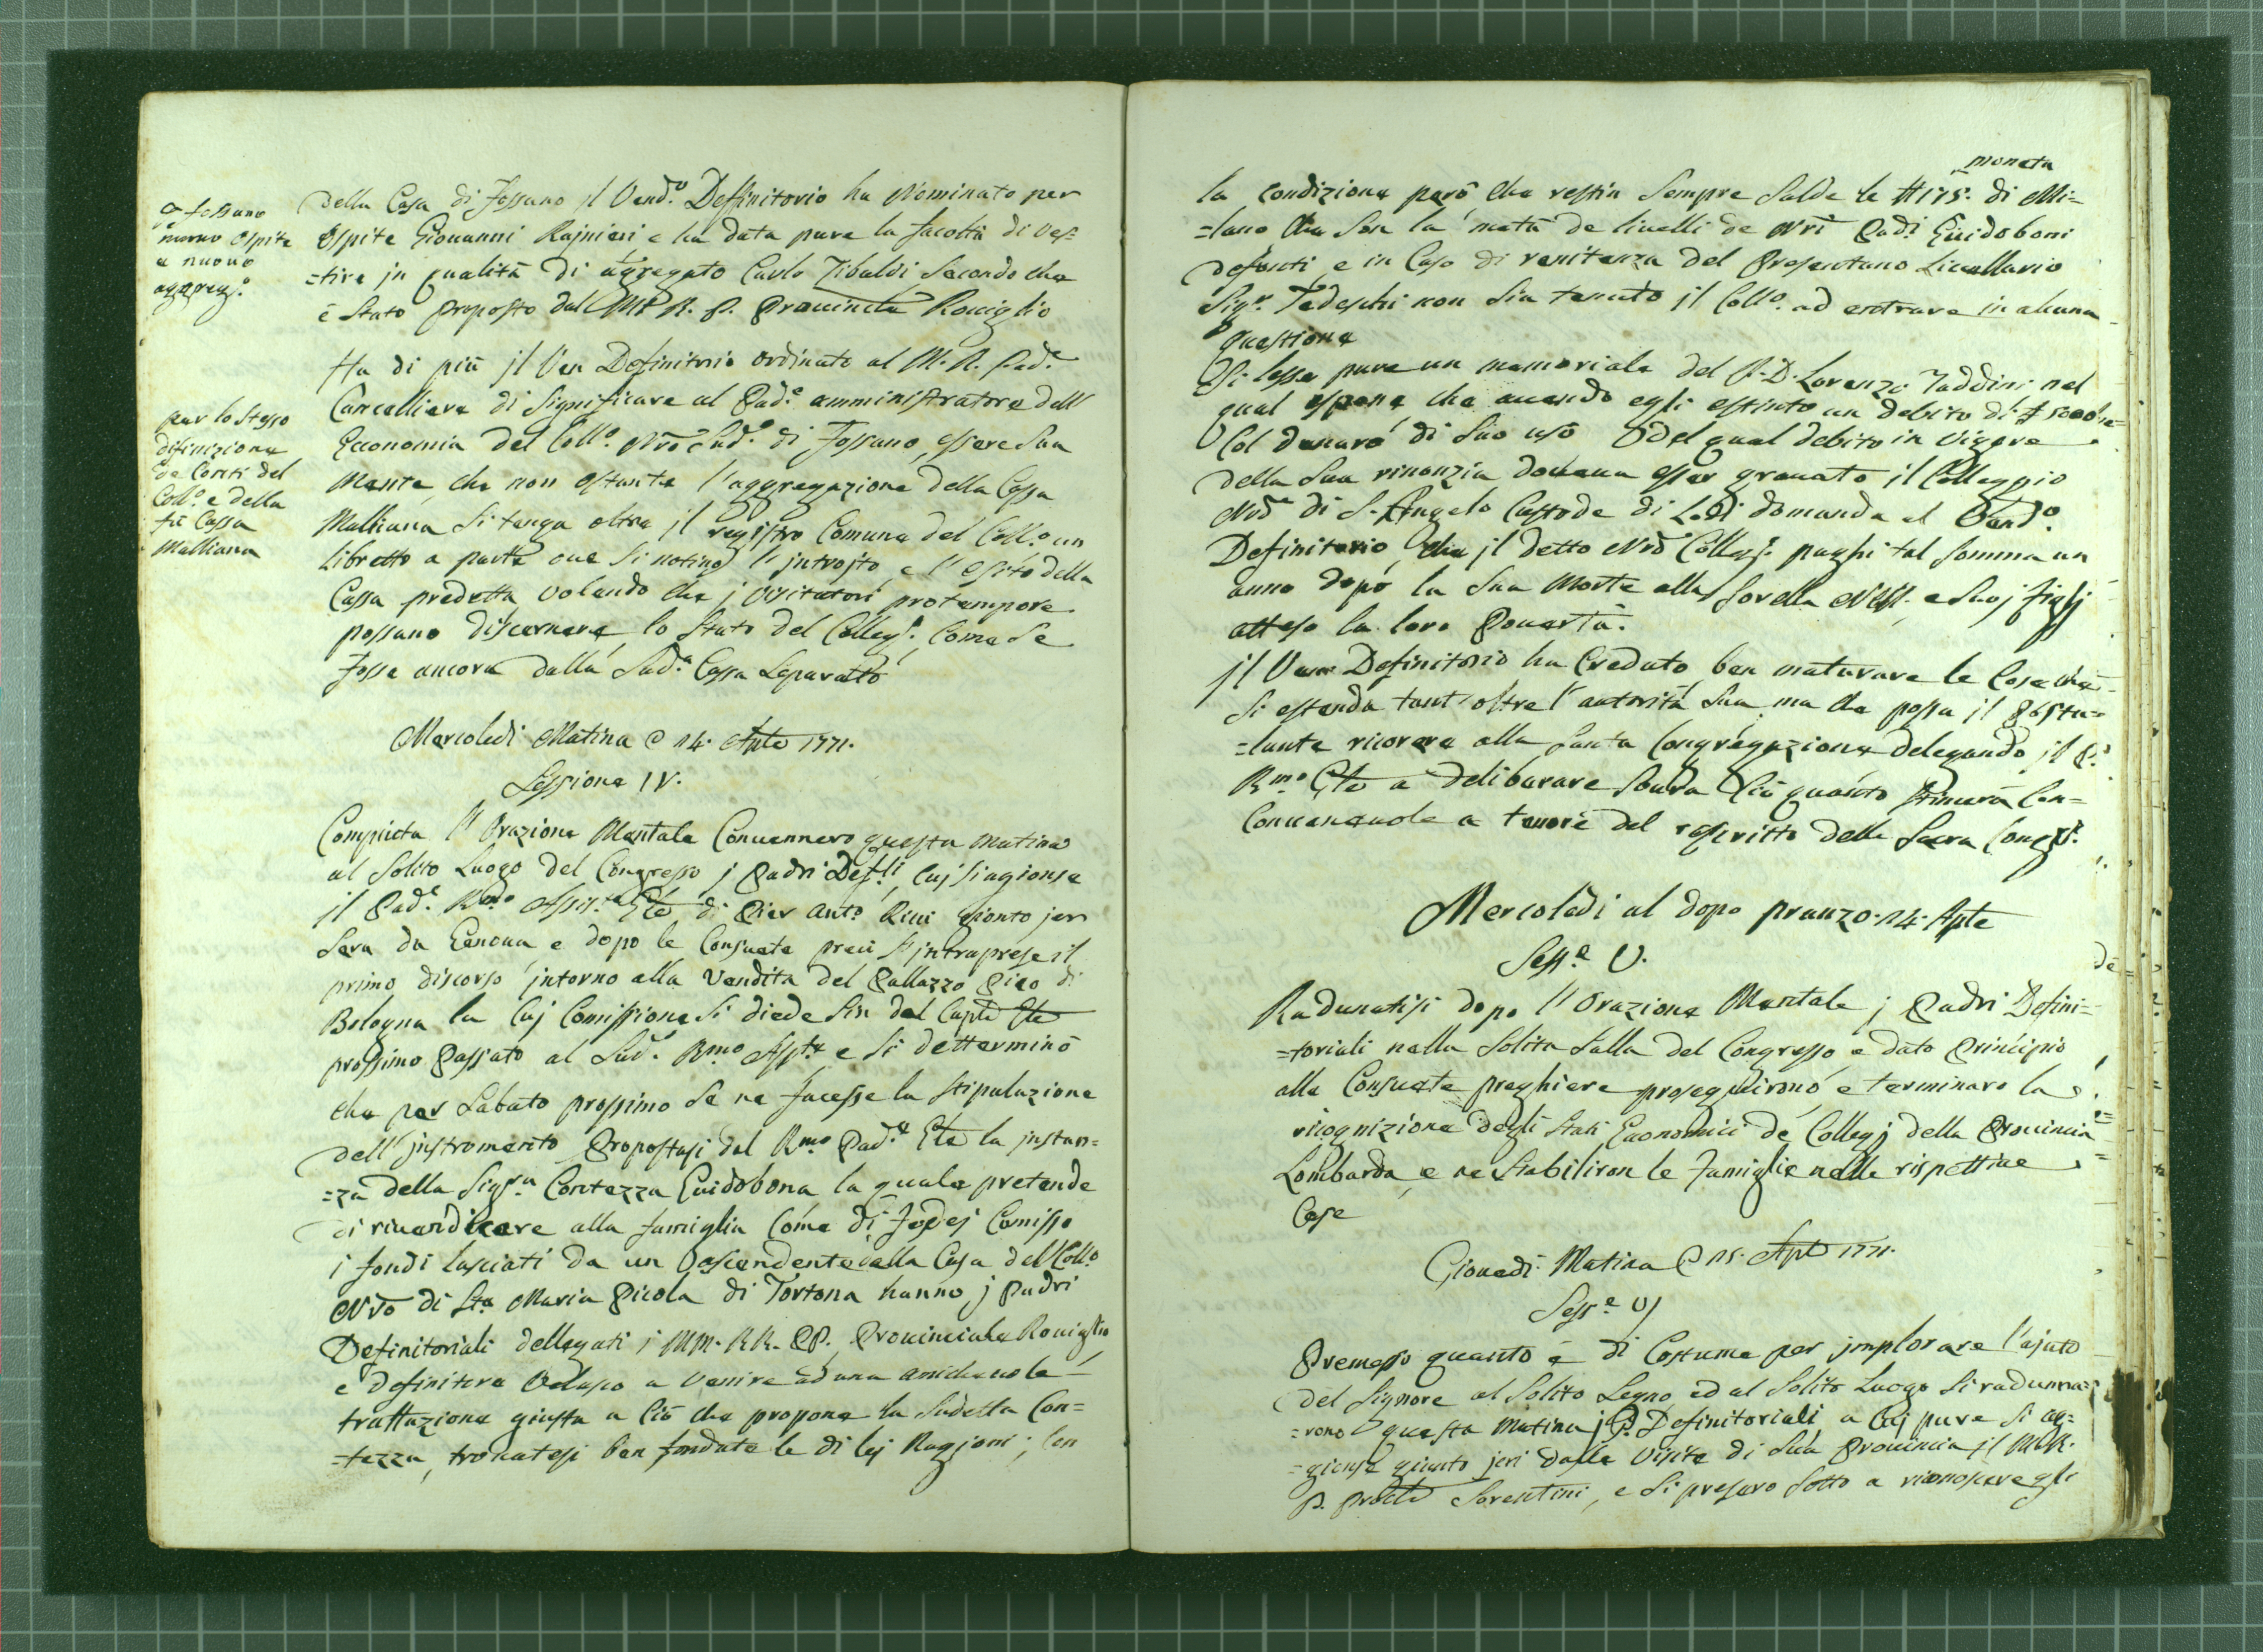 p Fossano
nuovo Ospite
e nuovo
aggreg.º
Della Casa di Fossano jl Vend.º Deffinitorio ha Nominato per
Ospite Giouanni Rajnieri, e ha data pure la facoltà di ves=
=tire jn qualità di aggregato Carlo Tibaldi secondo che
è stato proposto dal M. R. P. Prouinciale Rouiglio
Ha di più jl Ven Definitorio ordinato al M. R. Pad.e
Cancelliere di significare al Pad.e amministratore dell'
Economia del Coll.º Nrõ Sud.º di Fossano, essere sua
Mente, che non ostante l'aggregazione della Cassa
Malliana si tenga oltre jl registro Comune del Coll.º un
libretto a parte oue si notino l'jntrojto, e l'esito della
Cassa predetta volendo che j Visitatori protempore
possano discernere lo stato del Colleg.º, Come se
fosse ancora dalla Sud.a Cassa separatto
per lo stesso
difinizione
de Conti del
Coll.º e della
fù Cassa
Malliana
Mercoledi Matina @ 14. Aple 1771.
Sessione IV.
Compiuta l'Orazione Mentale Conuennero questa matina
al solito Luogo del Congresso j Padri Def.li, Cuj si agionse
jl Pad.e R.mo Assis.te Gle di Pier Ant.º Riui gionto jeri
sera da Genoua e dopo le Consuete preci s'jntraprese il
primo discorso jntorno alla Vendita del Pallazzo Pico di
Bologna la Cuj Comissione si diede sin dal Caplo Gle
prossimo Passato al Sud.º R.mo Ass.te, e si detterminò
che per Sabato prossimo se ne facesse la stipulazione
dell'jnstromento Propostasi dal R.mo Pad.e Gle la jnstan=
=za della Sig.ra Contezza Guidobona la quale pretende
di riuendicare alla famiglia Come di Fidej Comisso
i fondi lasciati da un Ascendente alla Casa del Coll.º
Nrõ di Sta Maria Picola di Tortona hanno j Padri
Definitoriali dellegati j MM. RR. PP. Prouinciale Rouiglio,
e Definitore Velasco a venire ad una amicheuole
trattazione giusta a Ciò che propone la Sudetta Con=
=tezza, trouatesi ben fondate le di lej Ragioni; Con
la condizione però che restin sempre salde le ₶ 175. moneta di Mi=
=lano che son la metà de liuelli de Nri Padi Guidoboni
defonti, e in Caso di renitenza del Presentano Liuellario
Sig.r Tedeschi non sia tenuto jl Coll.º ad entrare in alcuna
questione
Si lesse pure un memoriale del P. D. Lorenzo Taddini nel
qual espone che auendo egli estinto un debito di
Col denaro di suo uso del qual debito in vigore
della sua rinonzia doueua esser grauato jl Colleggio
Nrõ di S. Angelo Custode di Lodi domanda al Vend.º
Definitorio, che jl detto Nrõ Colleg.º paghi tal somma un
anno dopo la sua Morte alla sorella e suoj figlj
atteso la loro Pouertà.
jl Ven Definitorio ha Creduto ben maturare le Cose che
si estenda tant'oltre l'autorità sua, ma che possa jl Postu=
=lante ricorere alla Santa Congregazione delegando jl P.
R.mo Gle a deliberare soura Ciò quanto stimerà Con=
Conueneuole a tenore del rescritto della Sacra Cong.e
Mercoledi al dopo pranzo. 14. Aple
Sess.e V.
Radunatisi dopo l'Orazione Mentale j Padri Defini=
=toriali nella solita Salla del Congresso, e dato Principio
alle Consuete preghiere proseguirono, e terminaro la
ricognizione degli Stati Economici de Collegj della Prouincia
Lombarda, e ne stabiliron le famiglie nelle rispettiue
Case
Giouedì Matina @ 15. Aple 1771.
Sess.e VI
Premesso quanto è di Costume per jmplorare l'ajuto
del Signore al solito Segno, ed al solito Luogo si radunna=
=rono questa matina j P.P. Definitoriali, a Cuj pure si ag=
=gionse giunto jeri dalla Visita di sua Prouincia jl M.R.
P. Prolle Sorentini, e si presero sotto a riconoscere gli